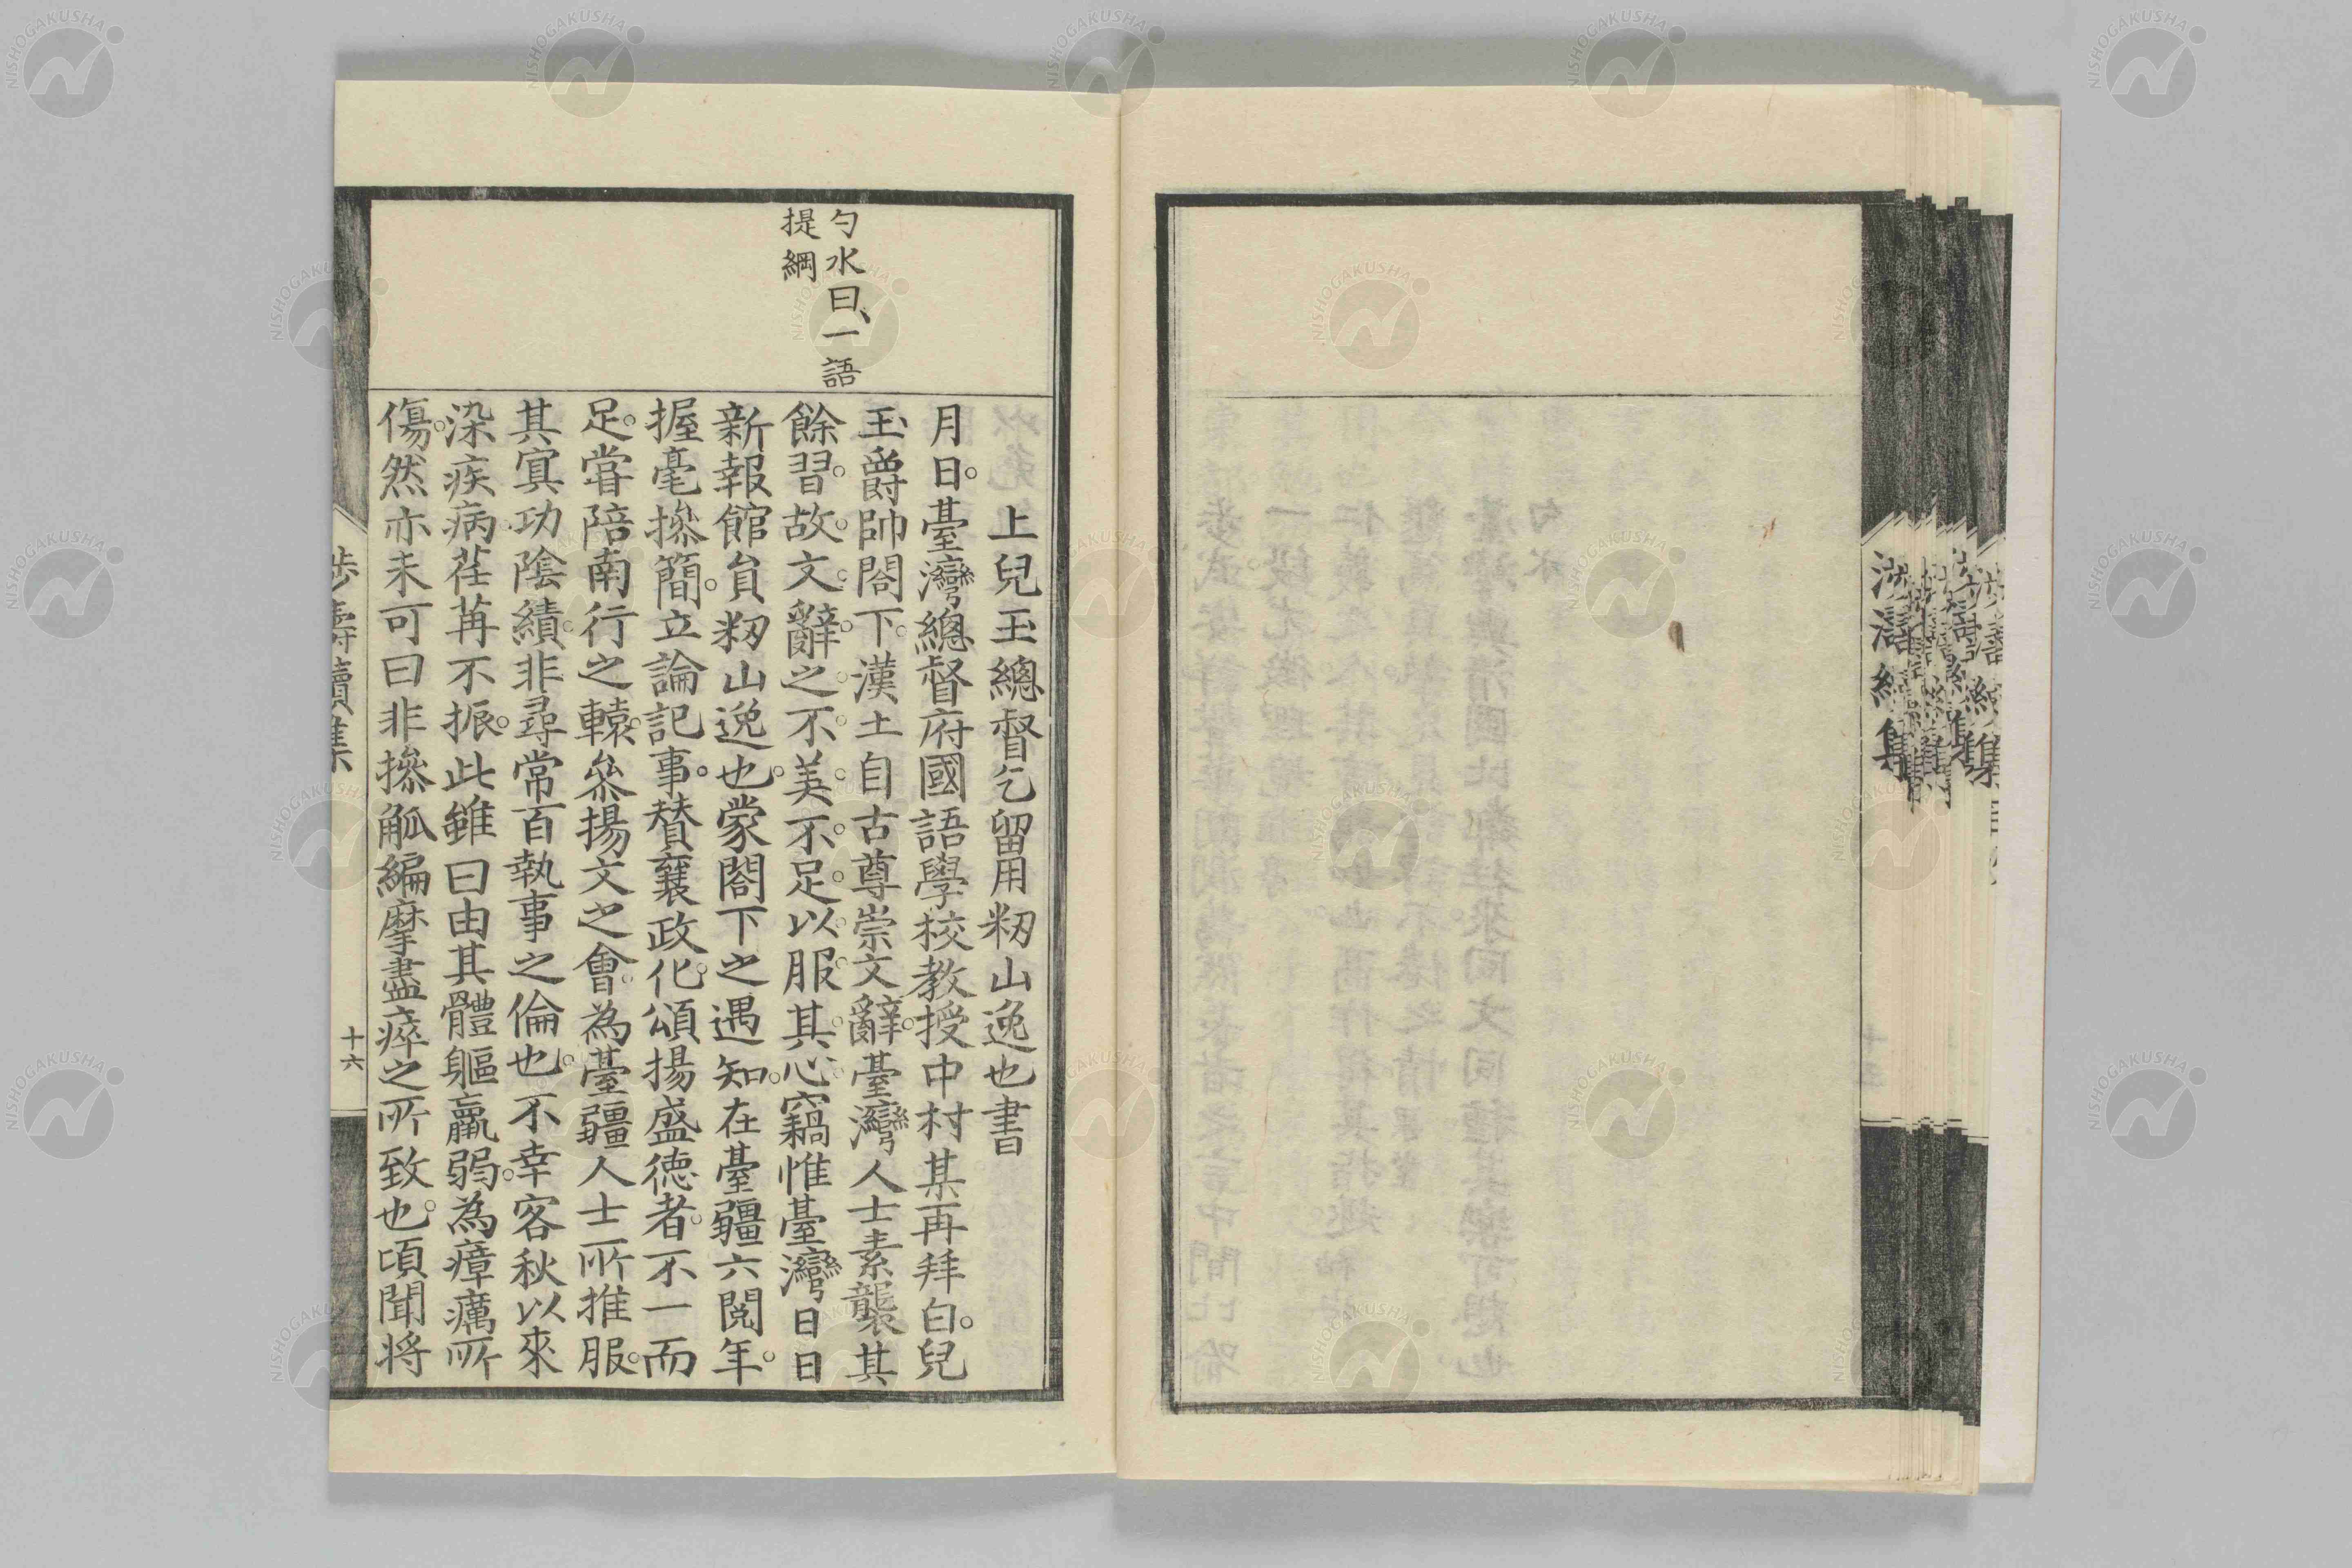 上兒玉總督乞留用籾山逸也書
月日。臺灣總督府國語學校教授中村某再拜白。兒
玉爵帥閤下。漢土自古尊崇文辭。臺灣人士素襲其
餘習。故文辭之不美不足以服其心。竊惟臺灣日日
新報館員籾山逸也。蒙閤下之遇知。在臺疆六閱年。
握毫摻簡。立論記事。賛襄政化。頌揚盛徳者。不一而
足。嘗陪南行之轅。叅揚文之會。為臺疆人士所推服。
其寘功陰績。非尋常百執事之倫也。不幸客秋以來
染疾病。荏苒不振。此雖曰由其體軀羸弱。為瘴癘所
傷。然亦未可曰非摻觚編摩盡瘁之所致也。頃聞将
勺水曰、一語
提綱
涉濤續集
十六
涉濤續集